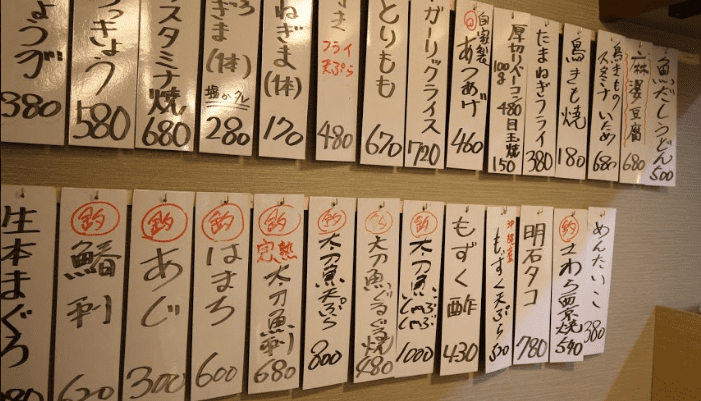 380
580
スタミナ焼
680
ぎま(1体)
塩かタレ
280
ねぎま(1体)
170
フライ
天ぷら
480
とりもも
670
ガーリックライス
720
自家製
あつあげ
460
厚切りベーコン
100g
480
目玉焼
150
たまねぎフライ
380
鳥きも焼
180
鳥きもの
スタミナいため
680
麻婆豆腐
680
魚だしうどん
500
生本まぐろ
釣
鰆刺
620
釣
あじ
300
釣
はまち
600
釣
完熟
太刀魚刺
680
釣
太刀魚天ぷら
800
釣
太刀魚ぐるぐる焼
480
釣
太刀魚しゃぶしゃぶ
1000
もずく酢
430
沖縄産
もずく天ぷら
500
明石タコ
780
釣
さわら西京焼
540
めんたいこ
380